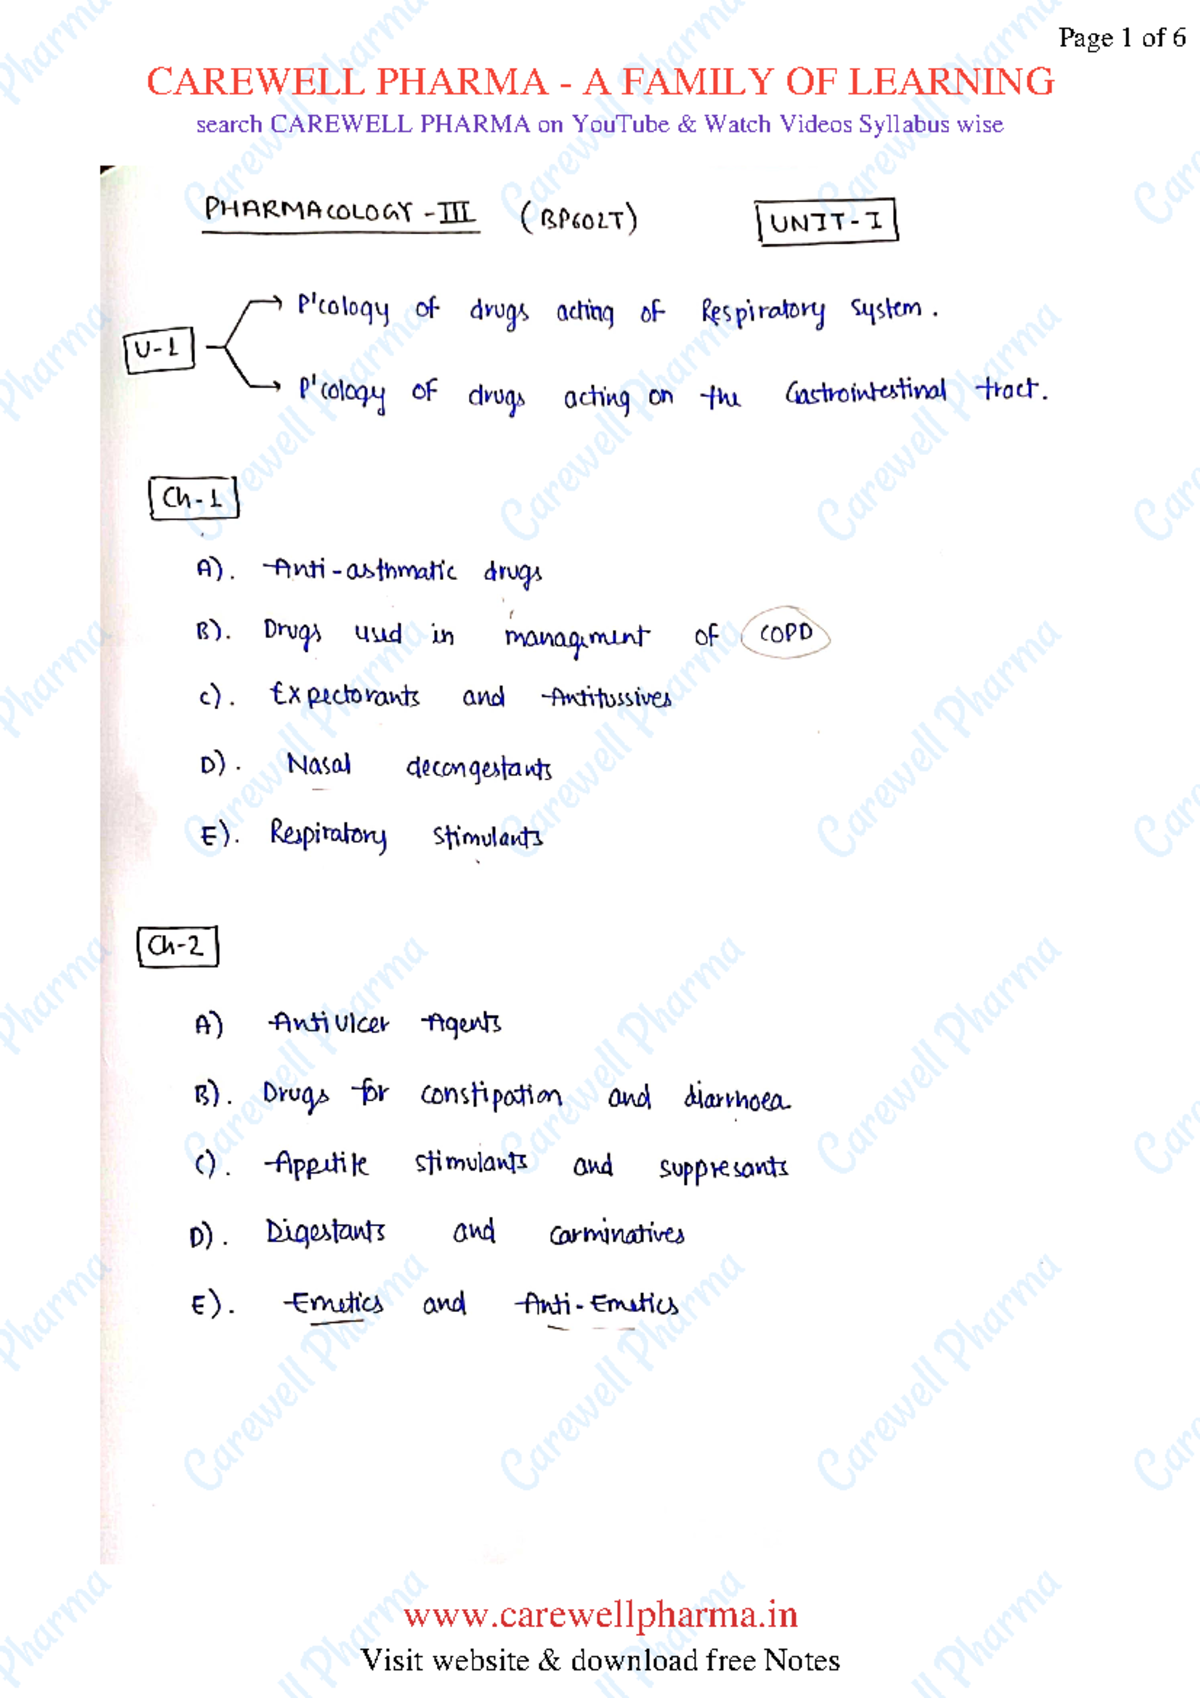 Page 1 of 6
CAREWELL PHARMA - A FAMILY OF LEARNING
search CAREWELL PHARMA on YouTube & Watch Videos Syllabus wise
PHARMACOLOGY - III (BP602T) UNIT - I
U-1
P'cology of drugs acting of Respiratory System.
P'cology of drugs acting on the Gastrointestinal tract.
Ch-1
A). Anti-asthmatic drugs
B). Drugs used in management of COPD
C). Expectorants and Antitussives
D). Nasal decongestants
E). Respiratory stimulants
Ch-2
A) Anti Ulcer Agents
B). Drugs for constipation and diarrhoea
C). Appetite stimulants and suppresants
D). Digestants and carminatives
E). Emetics and Anti-Emetics
www.carewellpharma.in
Visit website & download free Notes